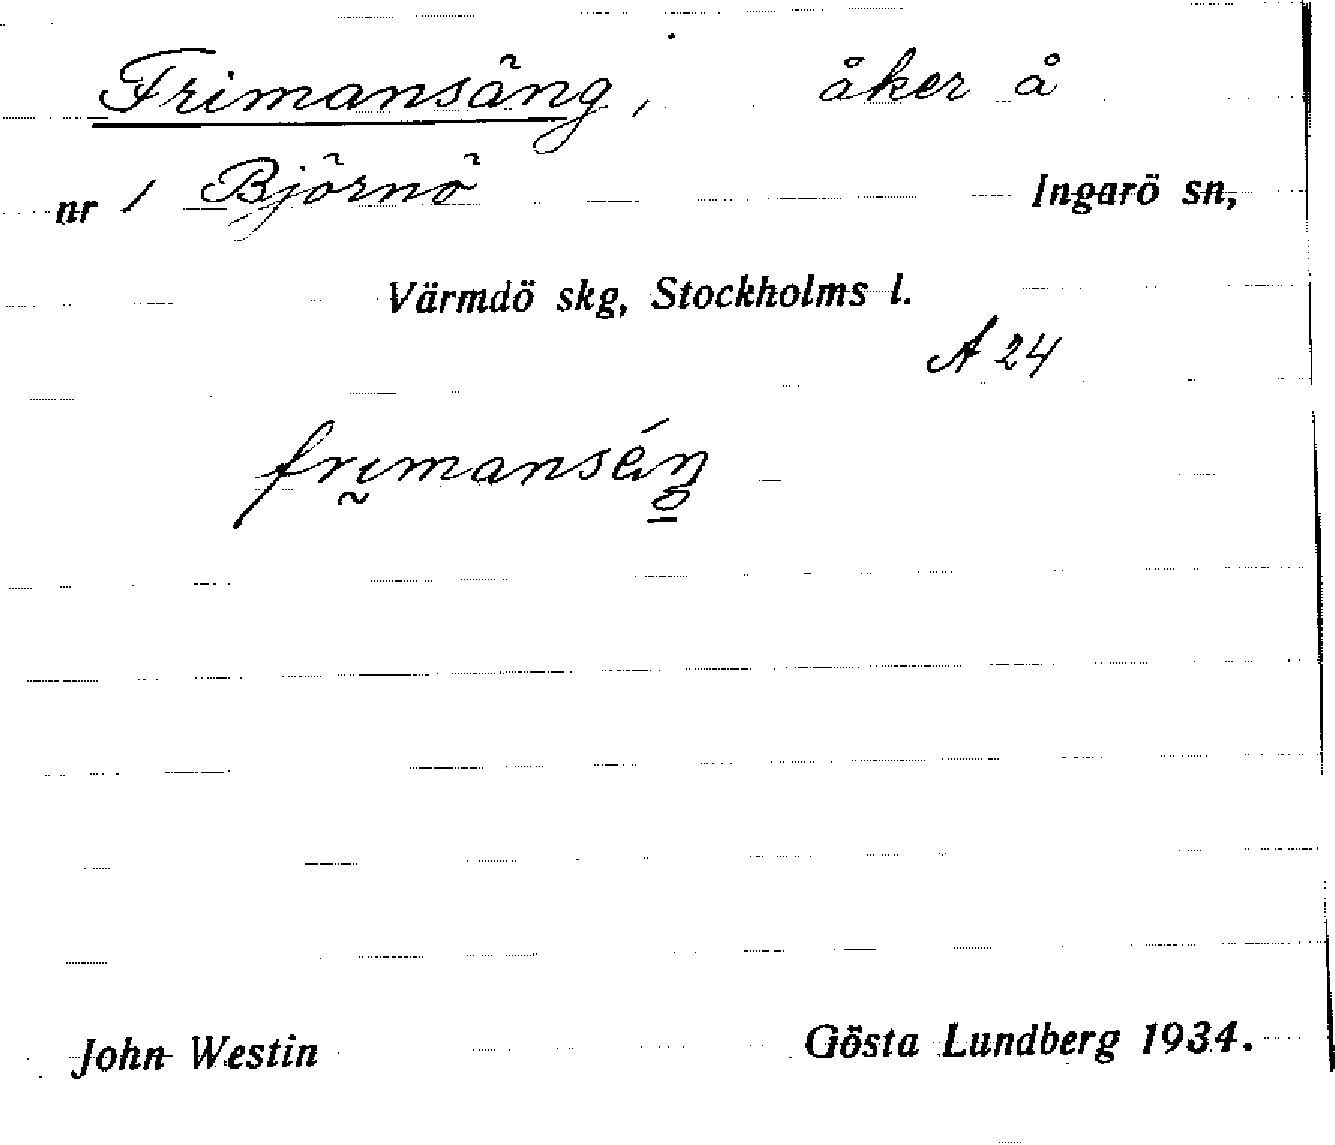 Frimansäng, åker å
nr 1 Björnö Ingarö sn,
Värmdö skg, Stockholms l.
A 24
frimanséŋ
John Westin Gösta Lundberg 1934.